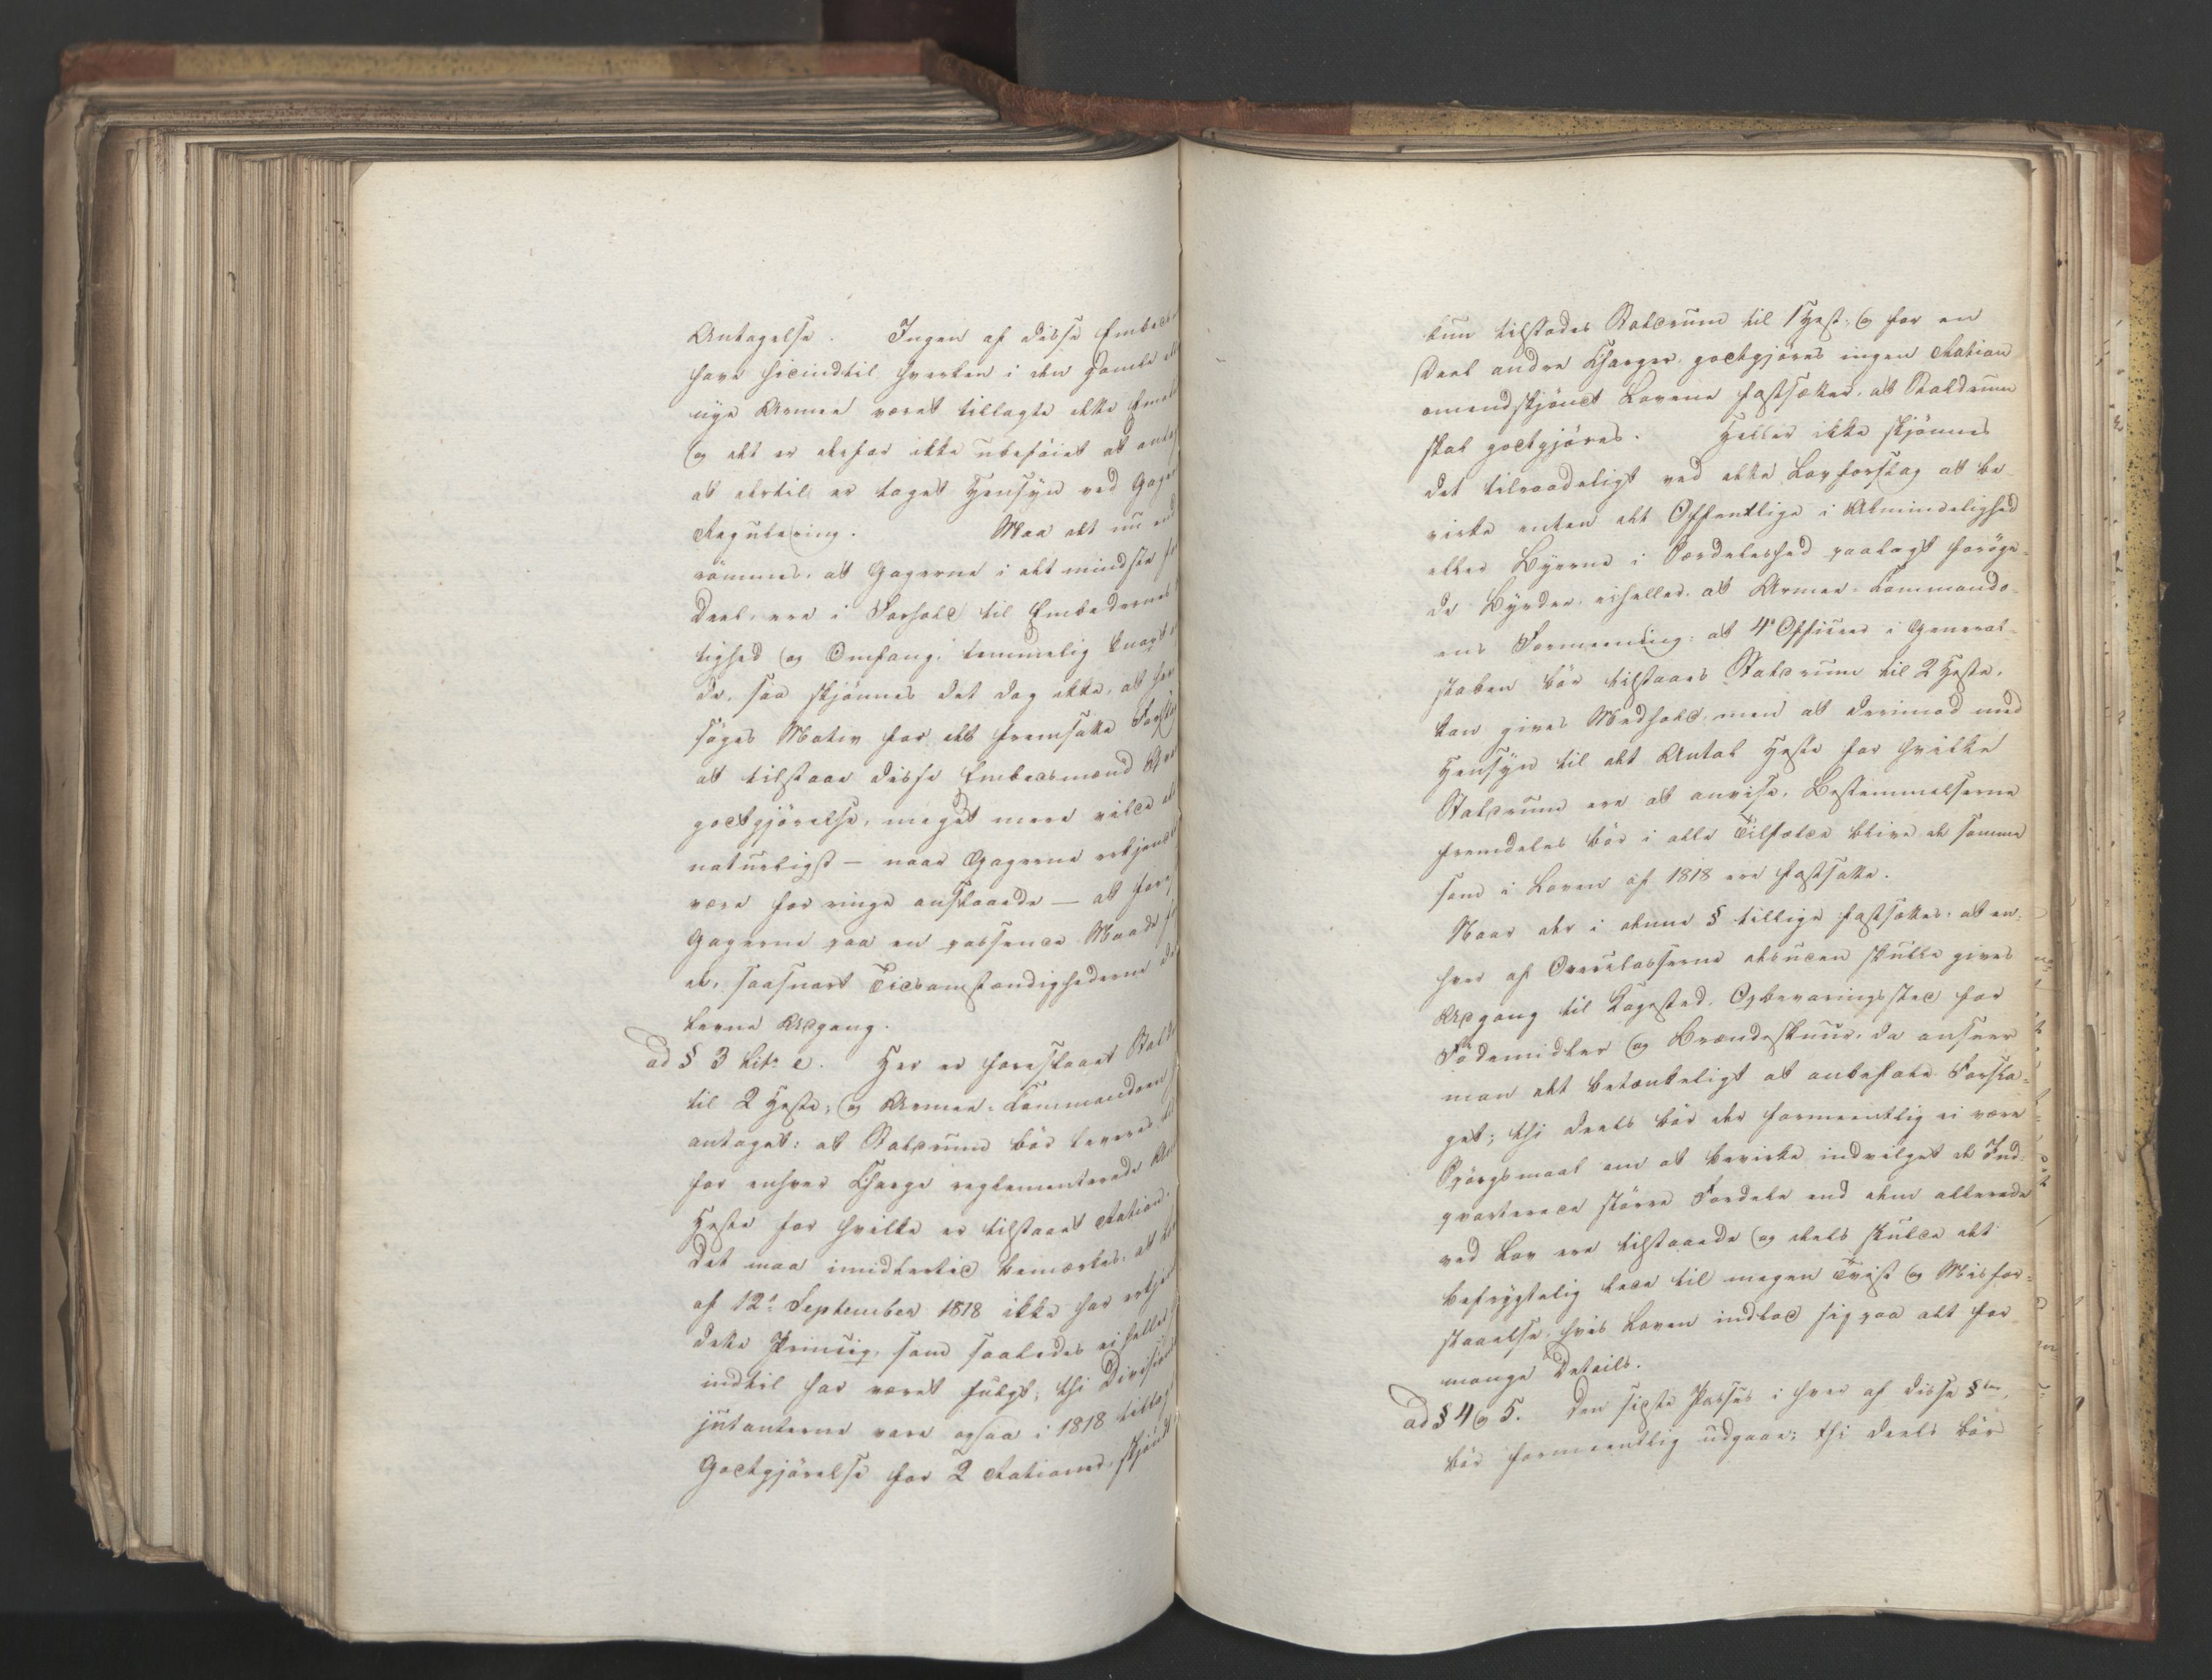 Antagelse. Ingen af disse Embeds
have hidindtil hverken i den gamle ell
nye Armee været tillagte dette Emol
og det er derfor ikke ubeføiet at antag
at dertil er taget Hensyn ved Gage
Regulering. Maa det nu end
rømmes, at Gagerne i det mindste for
Deel, ere i Forhold til Embedernes
tighed og Omfang, temmelig knapt
de, saa skjønnes det dog ikke, at her
søges Motiv for det fremsatte Forsla
at tilstaae disse Embedsmænd
godtgjørelse, meget mere vilde det
naturligst — naar Gagerne erkjendes
være for ringe anslaaede — at forh
Gagerne paa en passende Maade
es, saasnart Tidsomstændighederne
terne Adgang.
ad § 3 Litr. e. Her er foreslaaet Staldr
til 2 Heste, og Armee-Commandoen
antaget: at Staldrum bør leveres til
for enhver Charge reglementerede An
Heste for hvilke er tilstaaet Ration.
Det maa imidlertid bemærkes, at Lov
af 12te September 1818 ikke har erkjen
dette Princip, som saaledes ei heller
indtil har været fulgt; thi Divisions
jutanterne vare ogsaa i 1818 tillag
Godtgjørelse for 2 Rationer, skjønt
kun tilstodes Staldrum til 1 Hest, og for en
Deel andre Charger godtgjøres ingen Ration
omendskjøndt Lovene fastsætter, at Staldrum
skal godtgjøres. Heller ikke skjønnes
det tilraadeligt ved dette Lovforslag at be-
virke enten det Offentlige i Almindelighed
eller Byerne i Særdeleshed paalagt forøge-
de Byrder, ei heller, at Armee-Commando-
ens Formening: at 4de Officer i General-
staben bør tilstaaes Staldrum til 2 Heste,
kan gives Medhold, men at derimod med
Hensyn til det Antal Heste for hvilke
Staldrum ere at anvise, Bestemmelserne
fremdeles bør i alle Tilfælde blive de samme
som i Loven af 1818 ere fastsatte.
Naar der i denne § tillige fastsættes: at en-
hver af Overclasserne desuden skulle gives
Adgang til Kogested, Opbevaringssted for
Fødemidler og Brændeskuur, da anseer
man det betænkeligt at anbefale Forsla-
get; thi deels bør der formeentlig ei være
Spørgsmaal om at bevirke indvilget de Ind-
qvarterede større Fordele end dem allerede
ved Lov ere tilstaaede og deels skulde det
befrygtelig lede til megen Tvist og Misfor-
staaelse, hvis Loven indlod sig paa det for
mange Details.
ad § 4 og 5. Den sidste Passus i hver af disse §er,
bør formeentlig udgaae; thi deels bør